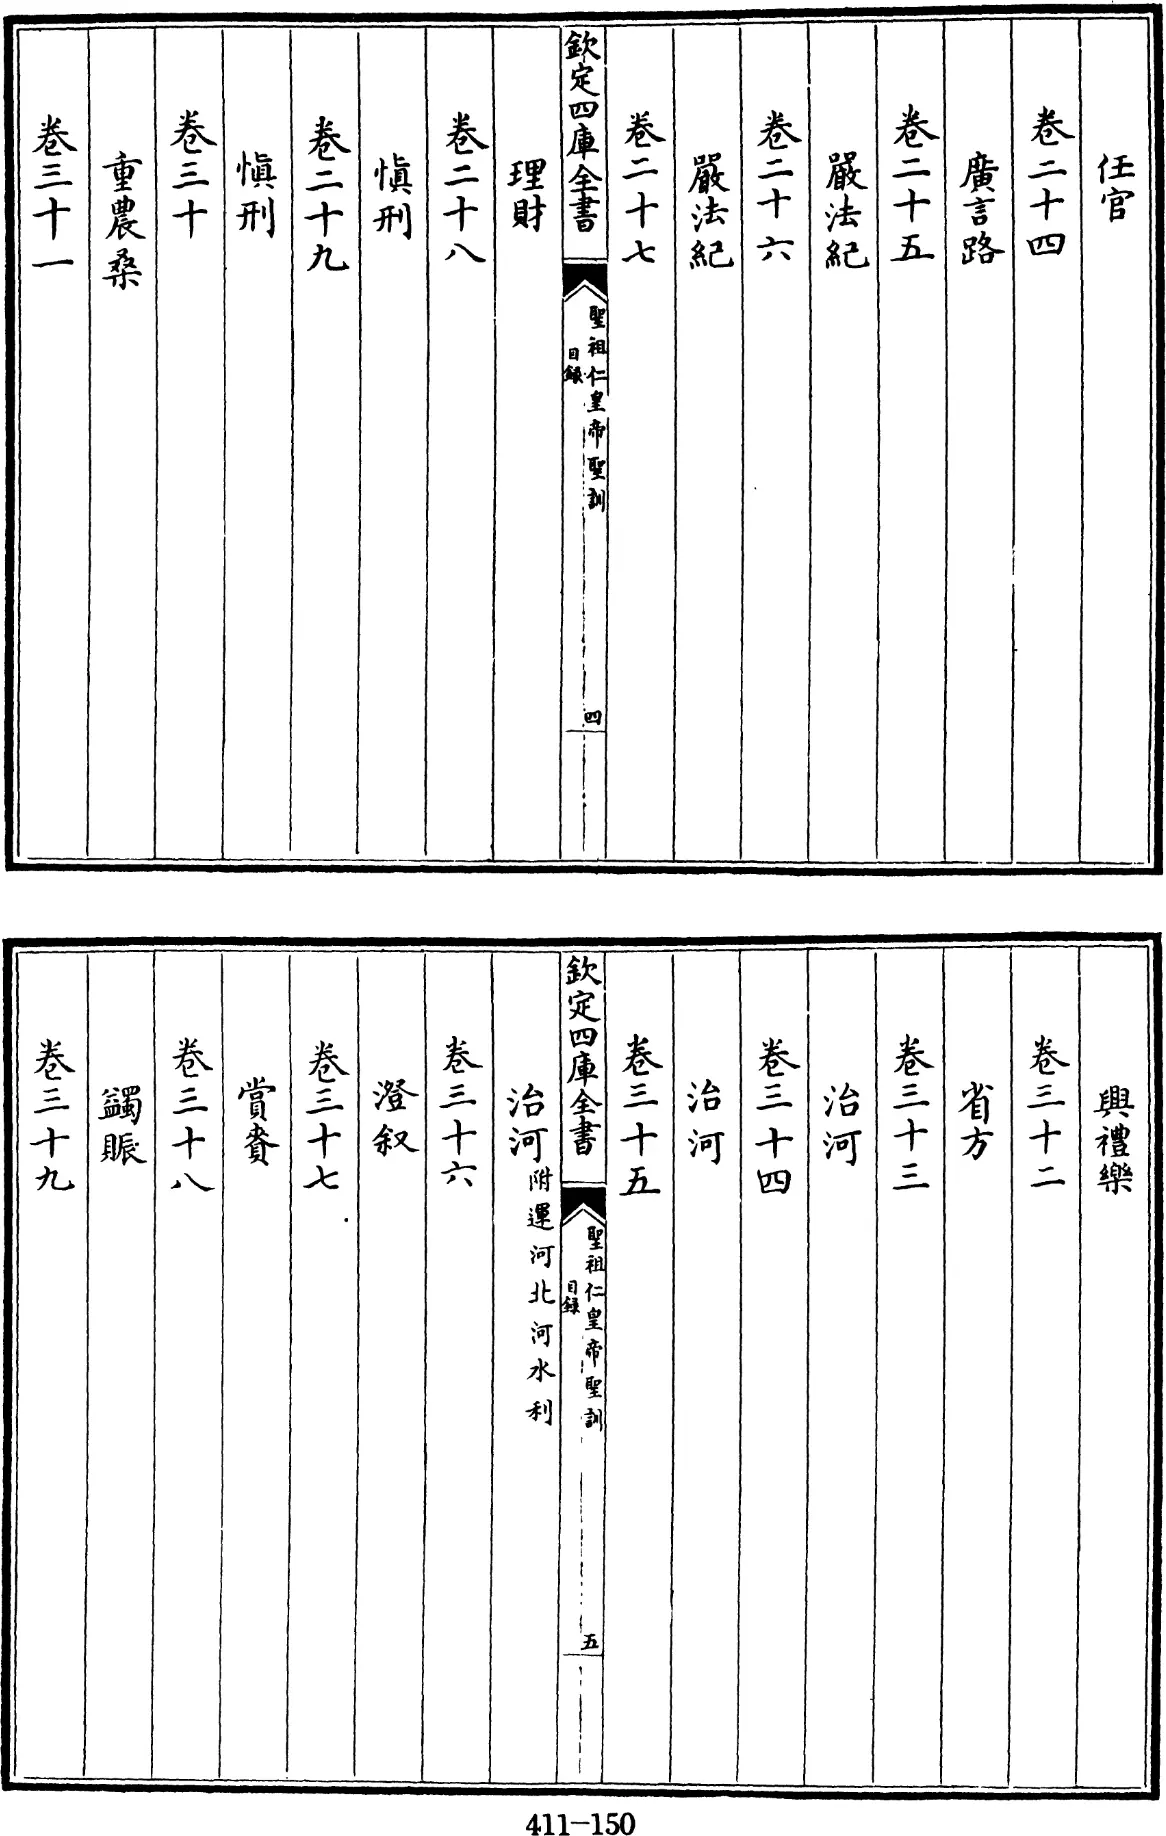 任官
卷二十四
廣言路
卷二十五
嚴法紀
卷二十六
嚴法紀
卷二十七
欽定四庫全書
聖祖仁皇帝聖訓
目錄
四
理財
卷二十八
慎刑
卷二十九
慎刑
卷三十
重農桑
卷三十一
興禮樂
卷三十二
省方
卷三十三
治河
卷三十四
治河
卷三十五
欽定四庫全書
聖祖仁皇帝聖訓
目錄
五
治河附運河北河水利
卷三十六
澄叙
卷三十七
賞賚
卷三十八
蠲賑
卷三十九
411-150